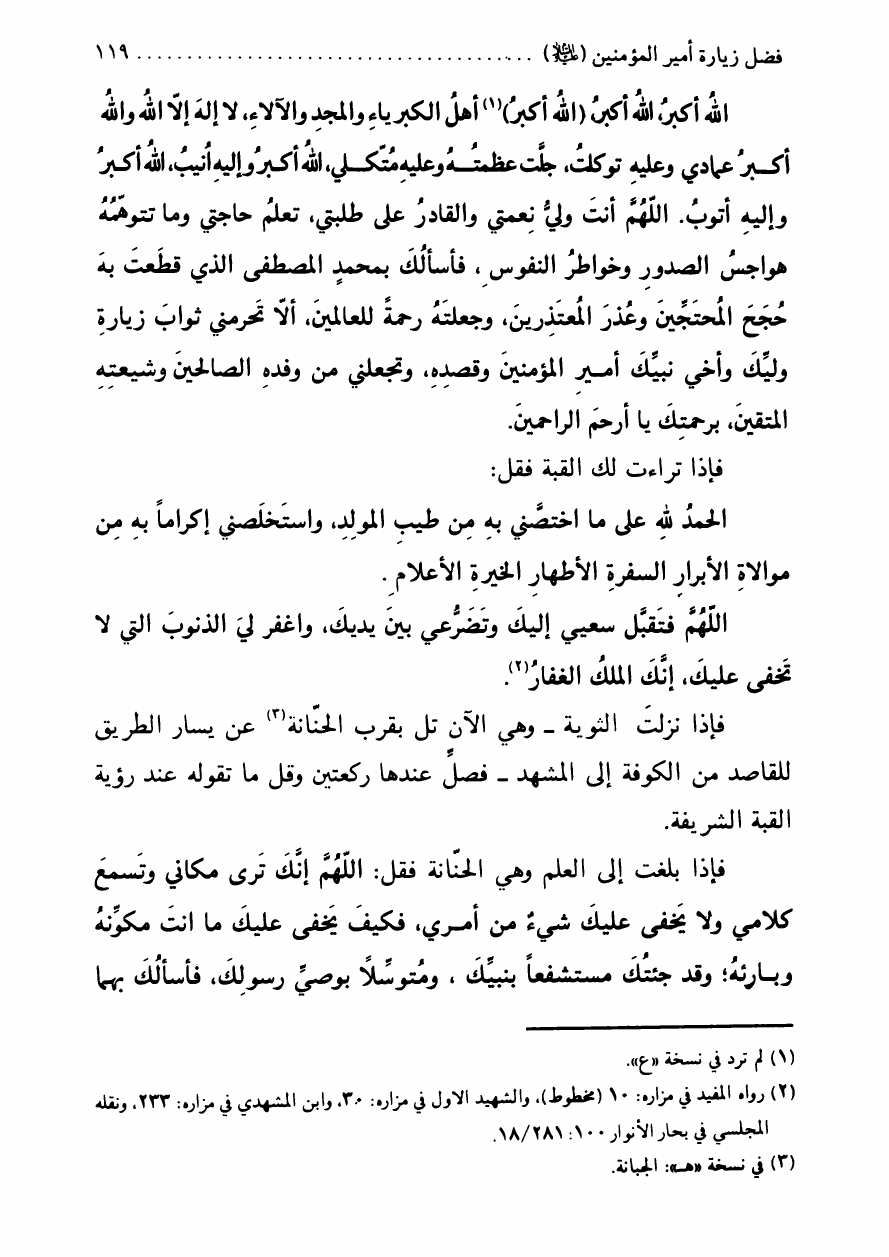 فضل زيارة أمير المؤمنين (عليه السلام) ........................................ ١١٩
اللهُ أكبرُ، اللهُ أكبرُ (اللهُ أكبرُ)(١) أهلُ الكبرياءِ والمجدِ والآلاءِ، لا إلهَ إلّا اللهُ واللهُ
أكـبرُ عمادي وعليهِ توكلتُ، جلَّت عظمتُـهُ وعليهِ مُتّكـلي، اللهُ أكـبرُ وإليهِ أُنيبُ، اللهُ أكـبرُ
وإليهِ أتوبُ. اللّهُمَّ أنتَ وليُّ نِعمتي والقادرُ على طلبتي، تعلمُ حاجتي وما تتوهّمُهُ
هواجسُ الصدورِ وخواطرُ النفوسِ، فأسألُكَ بمحمدٍ المصطفى الذي قطَعتَ بهَ
حُجَجَ المُحتَجِّينَ وعُذرَ المُعتَذِرينَ، وجعلتَهُ رحمةً للعالمينَ، ألّا تَحرمني ثوابَ زيارةِ
وليِّكَ وأخي نبيِّكَ أمـيرِ المؤمنينَ وقصدِهِ، وتجعلني من وفدهِ الصالحينَ وشيعتهِ
المتقينَ، برحمتِكَ يا أرحمَ الراحمينَ.
فإذا تراءت لك القبة فقل:
الحمدُ للهِ على ما اختصَّني بهِ مِن طيبِ المولِدِ، واستَخلَصني إكراماً بهِ مِن
موالاةِ الأبرارِ السفرةِ الأطهارِ الخيرةِ الأعلامِ.
اللّهُمَّ فتَقبَّل سعيي إليكَ وتَضَرُّعي بينَ يديكَ، واغفر ليَ الذنوبَ التي لا
تَخفى عليكَ، إنَّكَ الملكُ الغفارُ(٢).
فإذا نزلتَ الثوية ـ وهي الآن تل بقرب الحنّانة(٣) عن يسار الطريق
للقاصد من الكوفة إلى المشهد ـ فصلِّ عندها ركعتين وقل ما تقوله عند رؤية
القبة الشريفة.
فإذا بلغت إلى العلم وهي الحنّانة فقل: اللّهُمَّ إنَّكَ تَرى مكاني وتَسمعَ
كلامي ولا يَخفى عليكَ شيءٌ من أمـري، فكيفَ يَخفى عليكَ ما انتَ مكوِّنهُ
وبـارِئهُ؛ وقد جئتُكَ مستشفعاً بنبيِّكَ ، ومُتوسِّلاً بوصيِّ رسولِكَ، فأسألُكَ بهما
(١) لم ترد في نسخة «ع».
(٢) رواه المفيد في مزاره: ١٠ (مخطوط)، والشهيد الاول في مزاره: ٣٠، وابن المشهدي في مزاره: ٢٣٣، ونقله
المجلسي في بحار الأنوار ١٠٠: ١٨/٢٨١.
(٣) في نسخة «هـ»: الجبانة.